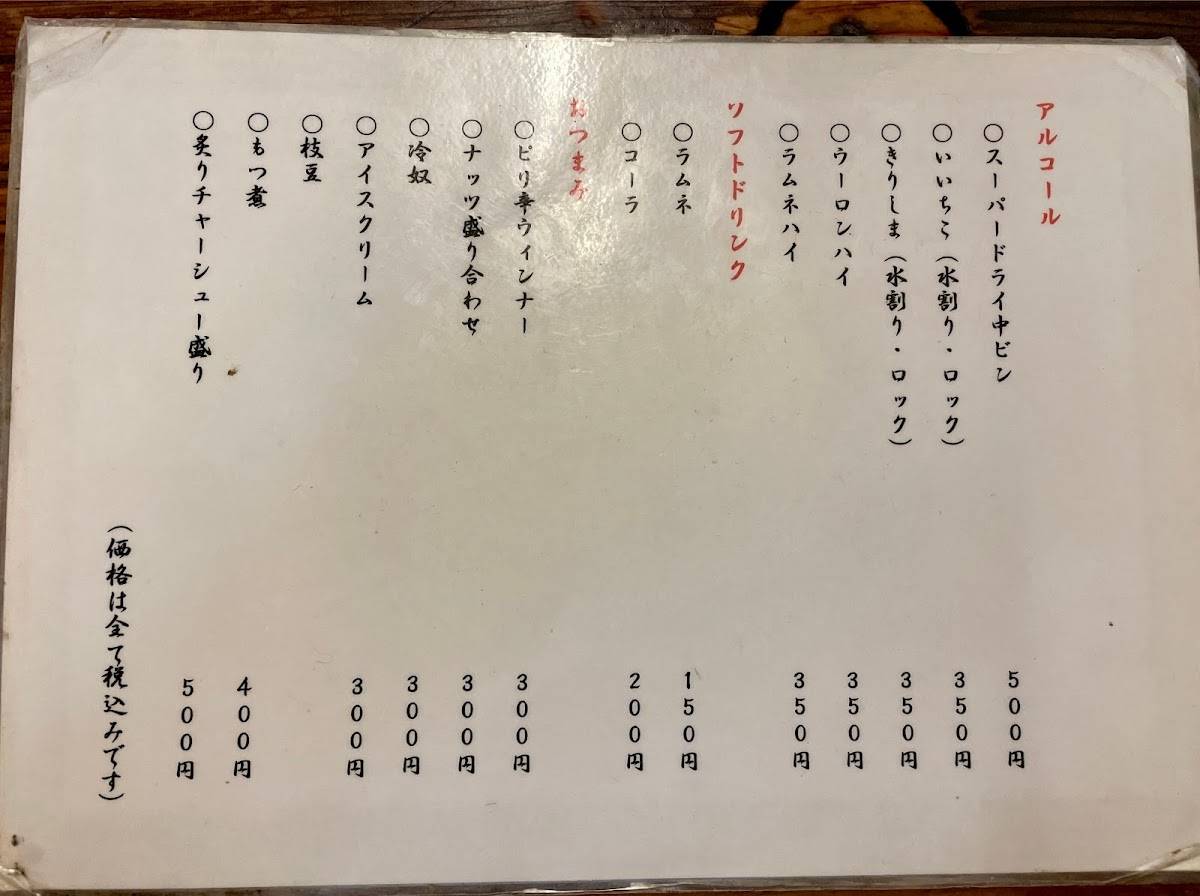 アルコール
○スーパードライ中ビン 500円
○いいちこ(水割り・ロック) 350円
○きりしま(水割り・ロック) 350円
○ウーロンハイ 350円
○ラムネハイ 350円
ソフトドリンク
○ラムネ 150円
○コーラ 200円
おつまみ
○ピリ辛ウィンナー 300円
○ナッツ盛り合わせ 300円
○冷奴 300円
○アイスクリーム 300円
○枝豆
○もつ煮 400円
○炙りチャーシュー盛り 500円
(価格は全て税込みです)